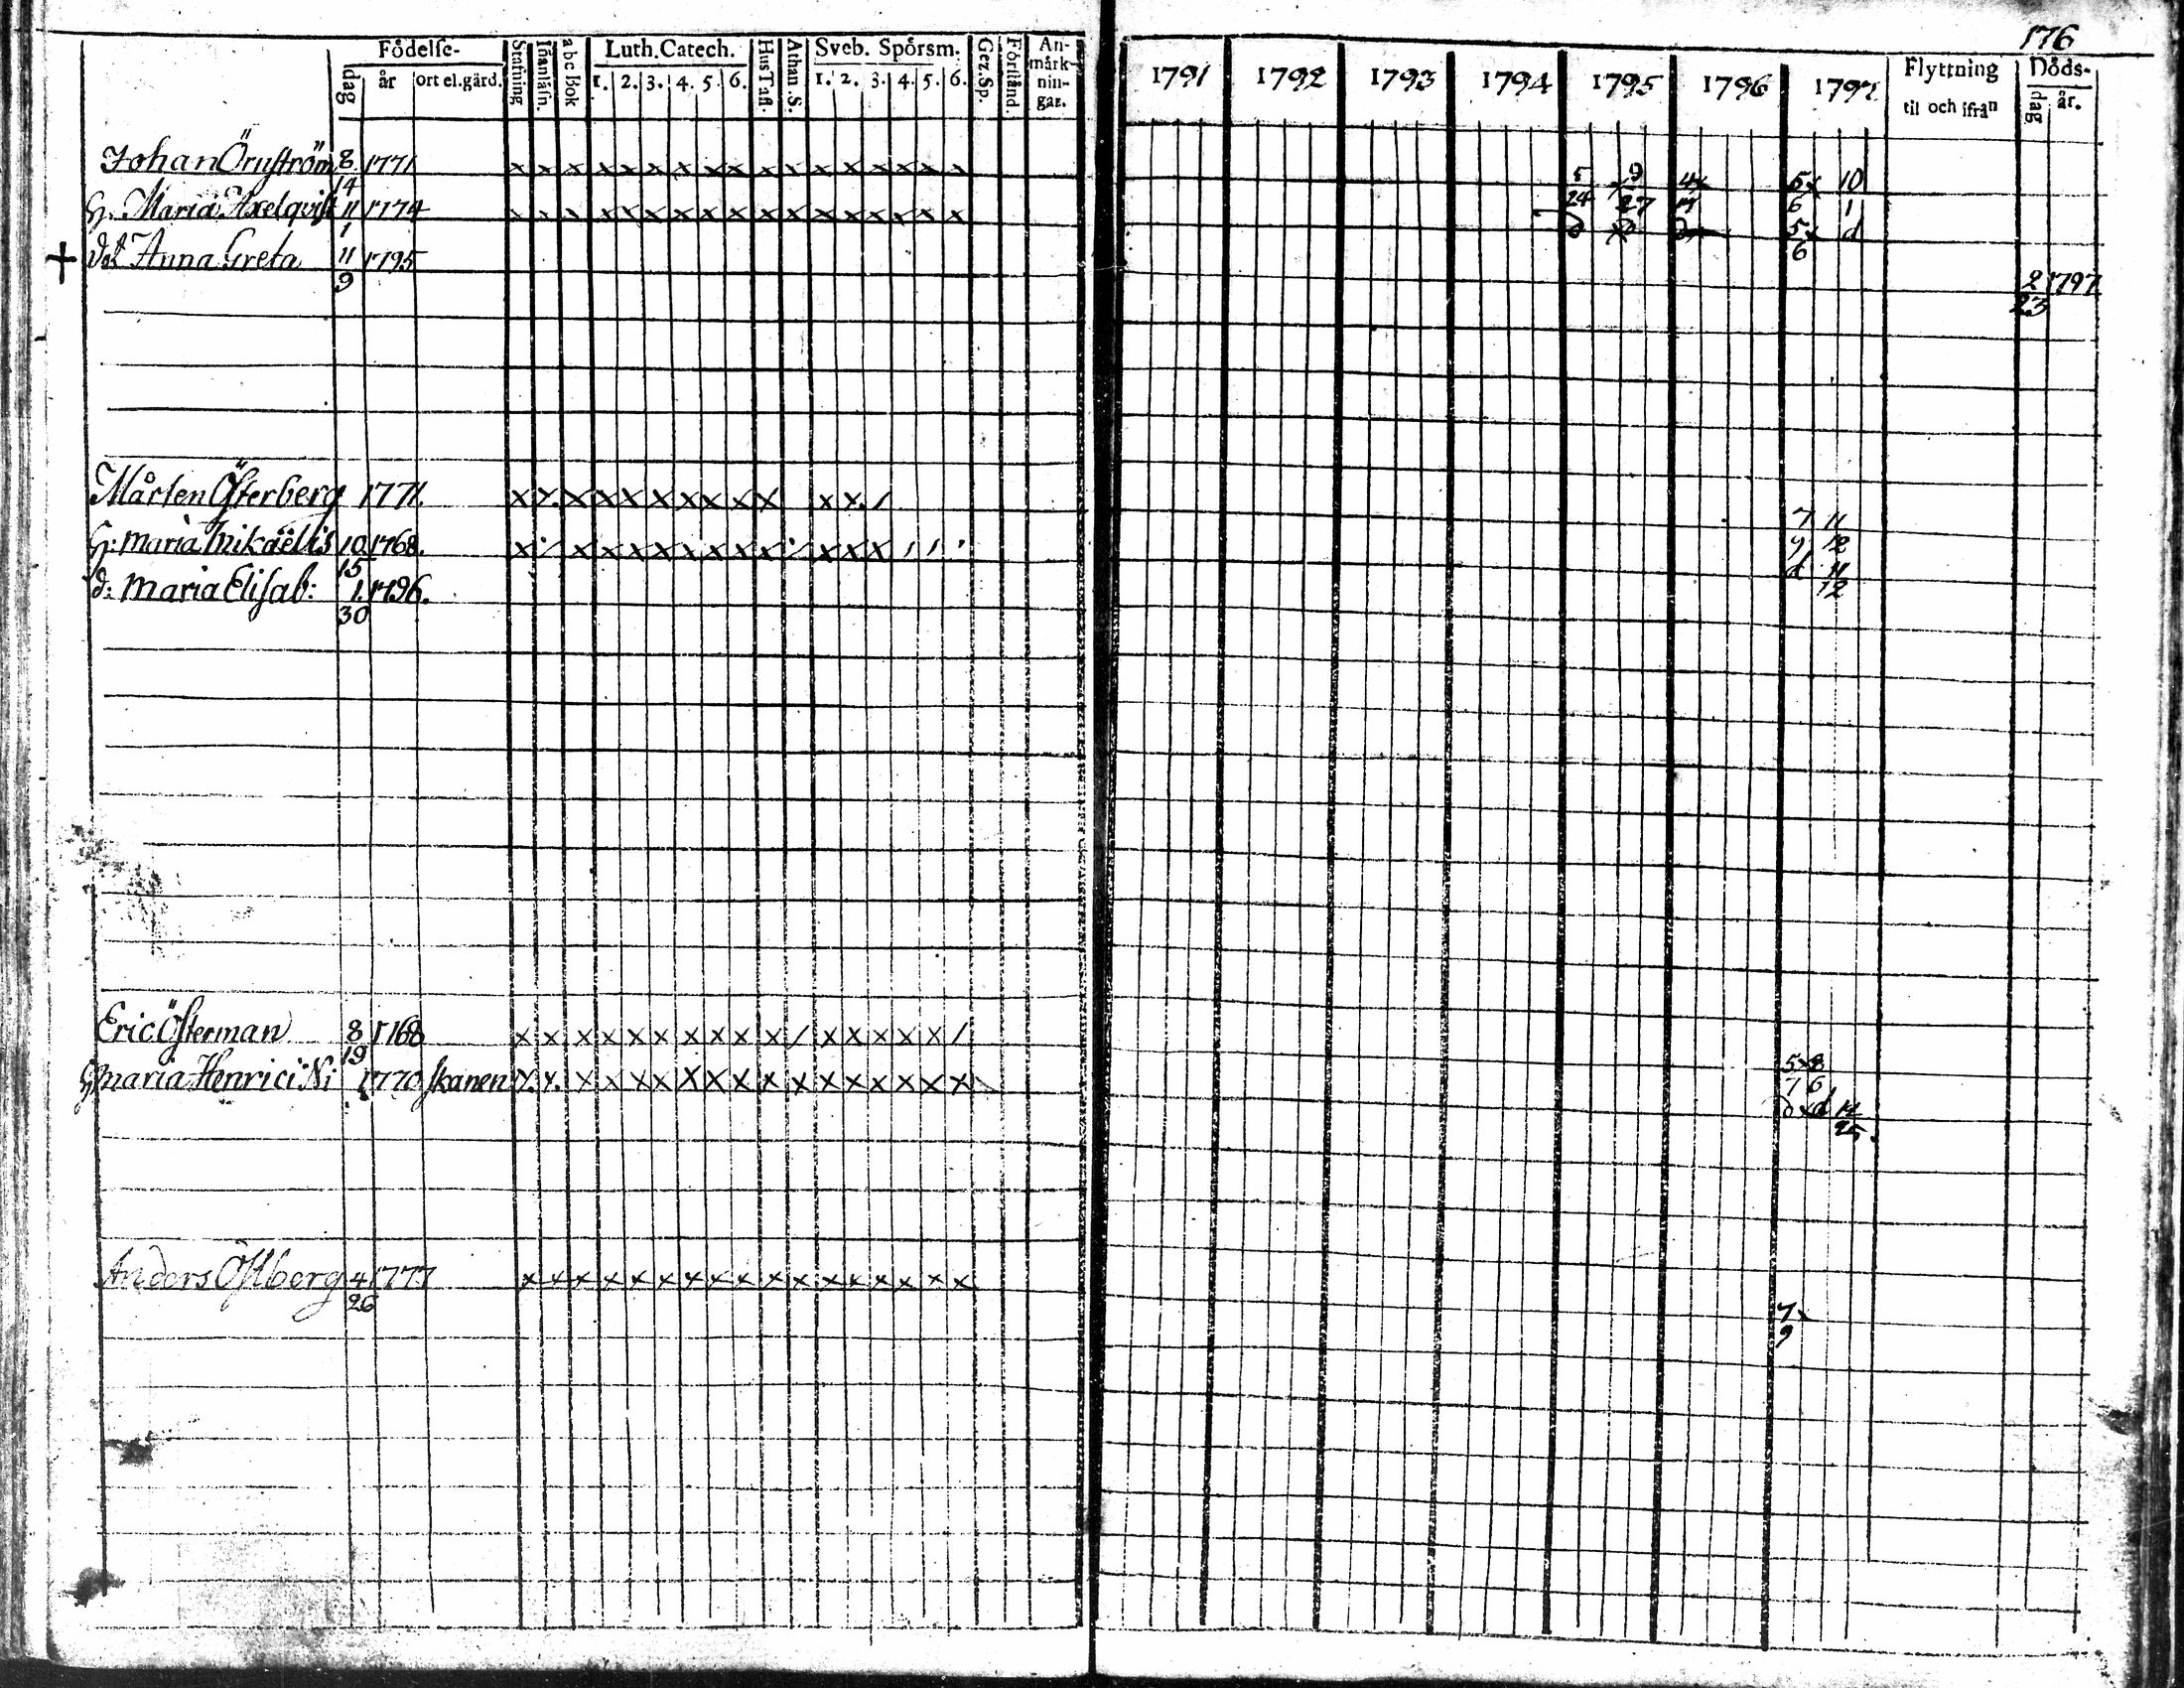 176
Födelse-
dag år ort el. gård.
Stafning Innanläsn. abc Bok
Luth. Catech.
1. 2. 3. 4. 5. 6.
Hus Tafl. Athan. S.
Sveb. Spörsm.
1. 2. 3. 4. 5. 6.
Gez. Sp. Förstånd.
An-
märk-
nin-
gar.
1791 1792 1793 1794 1795 1796 1797
Flyttning
til och ifrån
Döds-
dag år.
Johan Örnström 8 1771 x x x x x x x x x x x x x x x x x
14
H: Maria Axelqvist 11 1774 x x x x x x x x x x x x x x
1
+ dot Anna Greta 11 1795
9
5 9 4x 5x 10
24 27 6 1
5x d
6
2 1797
23
Mårten Österberg 1771. x x. x x x x x x x x x x. /
H: Maria Mikaëlis 10 1768. x x x x x x x x x x x
15
d: Maria Elisab: 1. 1796.
30
7 11
9 12
d 11
12
Eric Österman 8 1768 x x x x x x x x x x / x x x x x /
19
H Maria Henrici Ni 1770 skanen x. x. x x x x x x x x x x x x x x x
5x8
7 6
d x d 14
25.
Anders Östberg 4 1777 x x x x x x x x x x x x x x x x x
26
7x
9